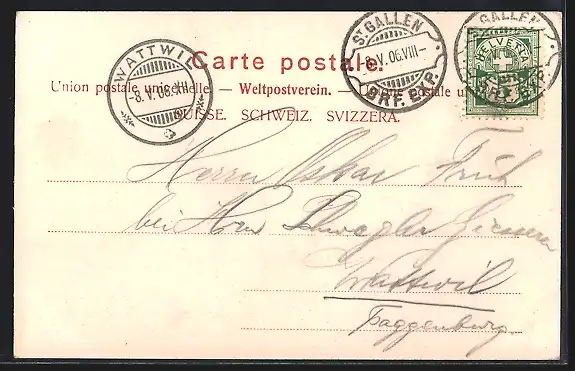 Carte postale.
Union postale universelle. — Weltpostverein. — Unione postale u
SUISSE. SCHWEIZ. SVIZZERA.
WATTWIL
-8.V.06.XII
ST GALLEN
8.V.06.VIII-
BRF. EXP.
GALLEN
BRF. EXP.
HELVETIA
Herrn Oskar Früh
bei Herrn Schwegler
Wattwil
Toggenburg